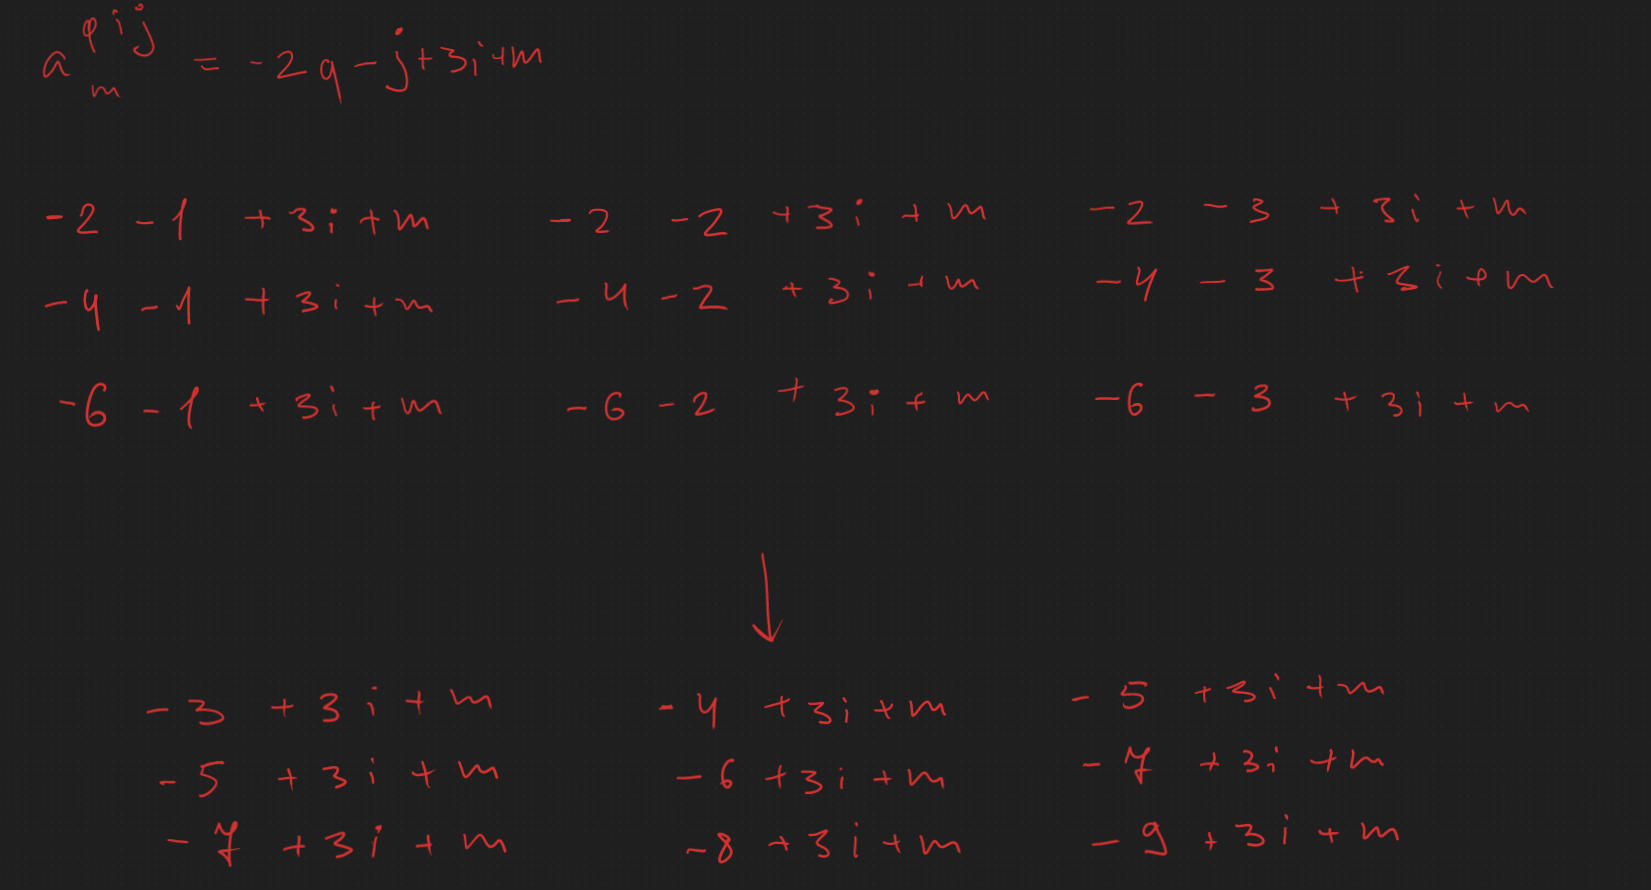 a^{qij}_m = -2q - j + 3i + m
-2 -1 +3i+m -2 -2 +3i +m -2 -3 + 3i + m
-4 -1 +3i+m -4 -2 +3i +m -4 -3 +3i +m
-6 -1 + 3i+m -6 -2 + 3i + m -6 - 3 + 3i + m
↓
-3 +3i+m -4 +3i+m -5 +3i+m
-5 +3i+m -6 +3i+m -7 +3i+m
-7 +3i+m -8 +3i+m -9 +3i+m